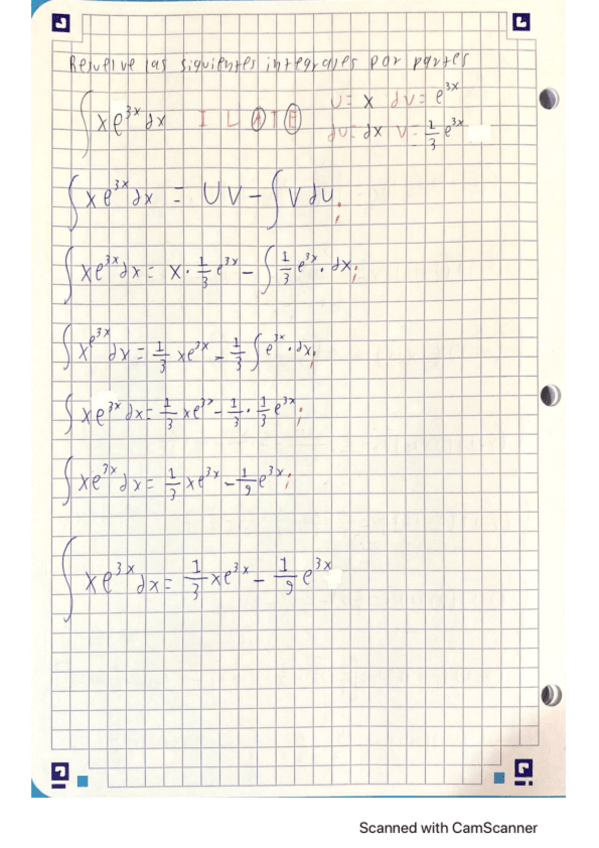 Resuelve las siguientes integrales por partes
∫xe^{3x}dx I L A T E u= x dv= e^{3x}
du= dx v= 1/3 e^{3x}
∫xe^{3x}dx = UV-∫Vdu;
∫xe^{3x}dx= x·1/3 e^{3x}-∫1/3 e^{3x}·dx;
∫x^{e^{3x}}dx=1/3 xe^{3x}-1/3∫e^{3x}·dx;
∫xe^{3x}dx=1/3 xe^{3x}-1/3·1/3 e^{3x};
∫xe^{3x}dx=1/3 xe^{3x}-1/9 e^{3x};
∫xe^{3x}dx=1/3 xe^{3x}-1/9 e^{3x}
Scanned with CamScanner